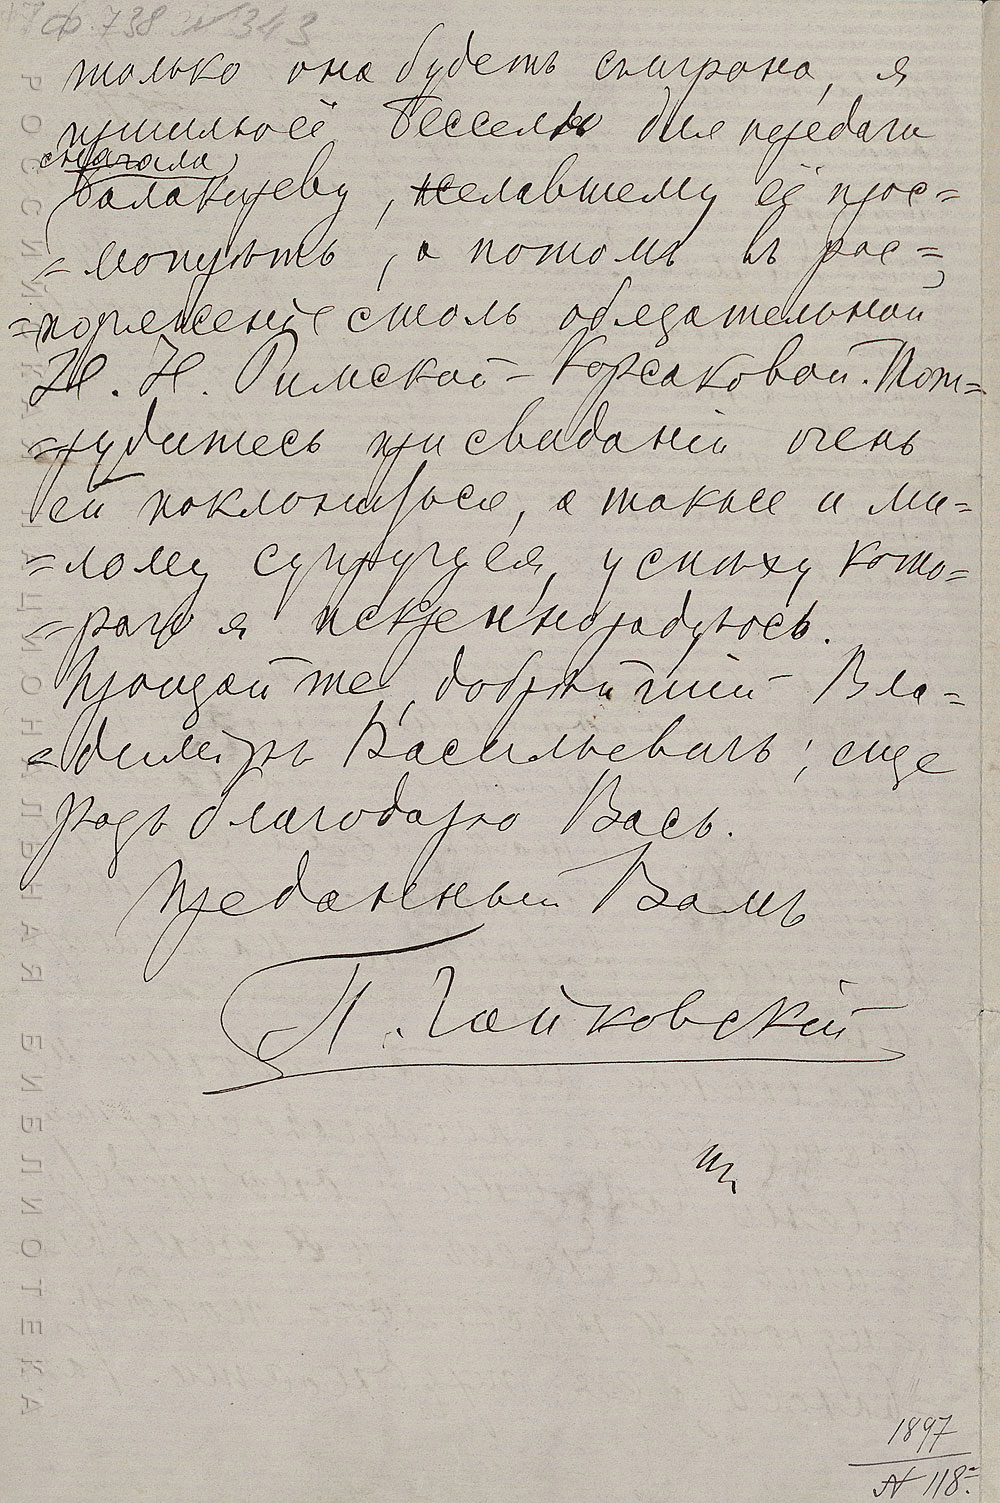 Ф. 738 № 343
только она будетъ съиграна, я
пришлю её Бесселю для передачи
сначала
Балакиреву, желавшему её прос=
=мотрѣть, а потомъ въ рас=
=поряженіе столь обязательной
Н. Н. Римской-Корсаковой. Пот=
=рудитесь при свиданіи очень
ей поклониться, а также и ми=
=лому супругу ея, успѣху кото=
=раго я искренно радуюсь.
Прощайте, добрѣйшій Вла=
=диміръ Васильевичъ; еще
разъ благодарю Васъ.
Преданный Вамъ
П. Чайковскій
1897
N 118.
РОССИЙСКАЯ НАЦИОНАЛЬНАЯ БИБЛИОТЕКА